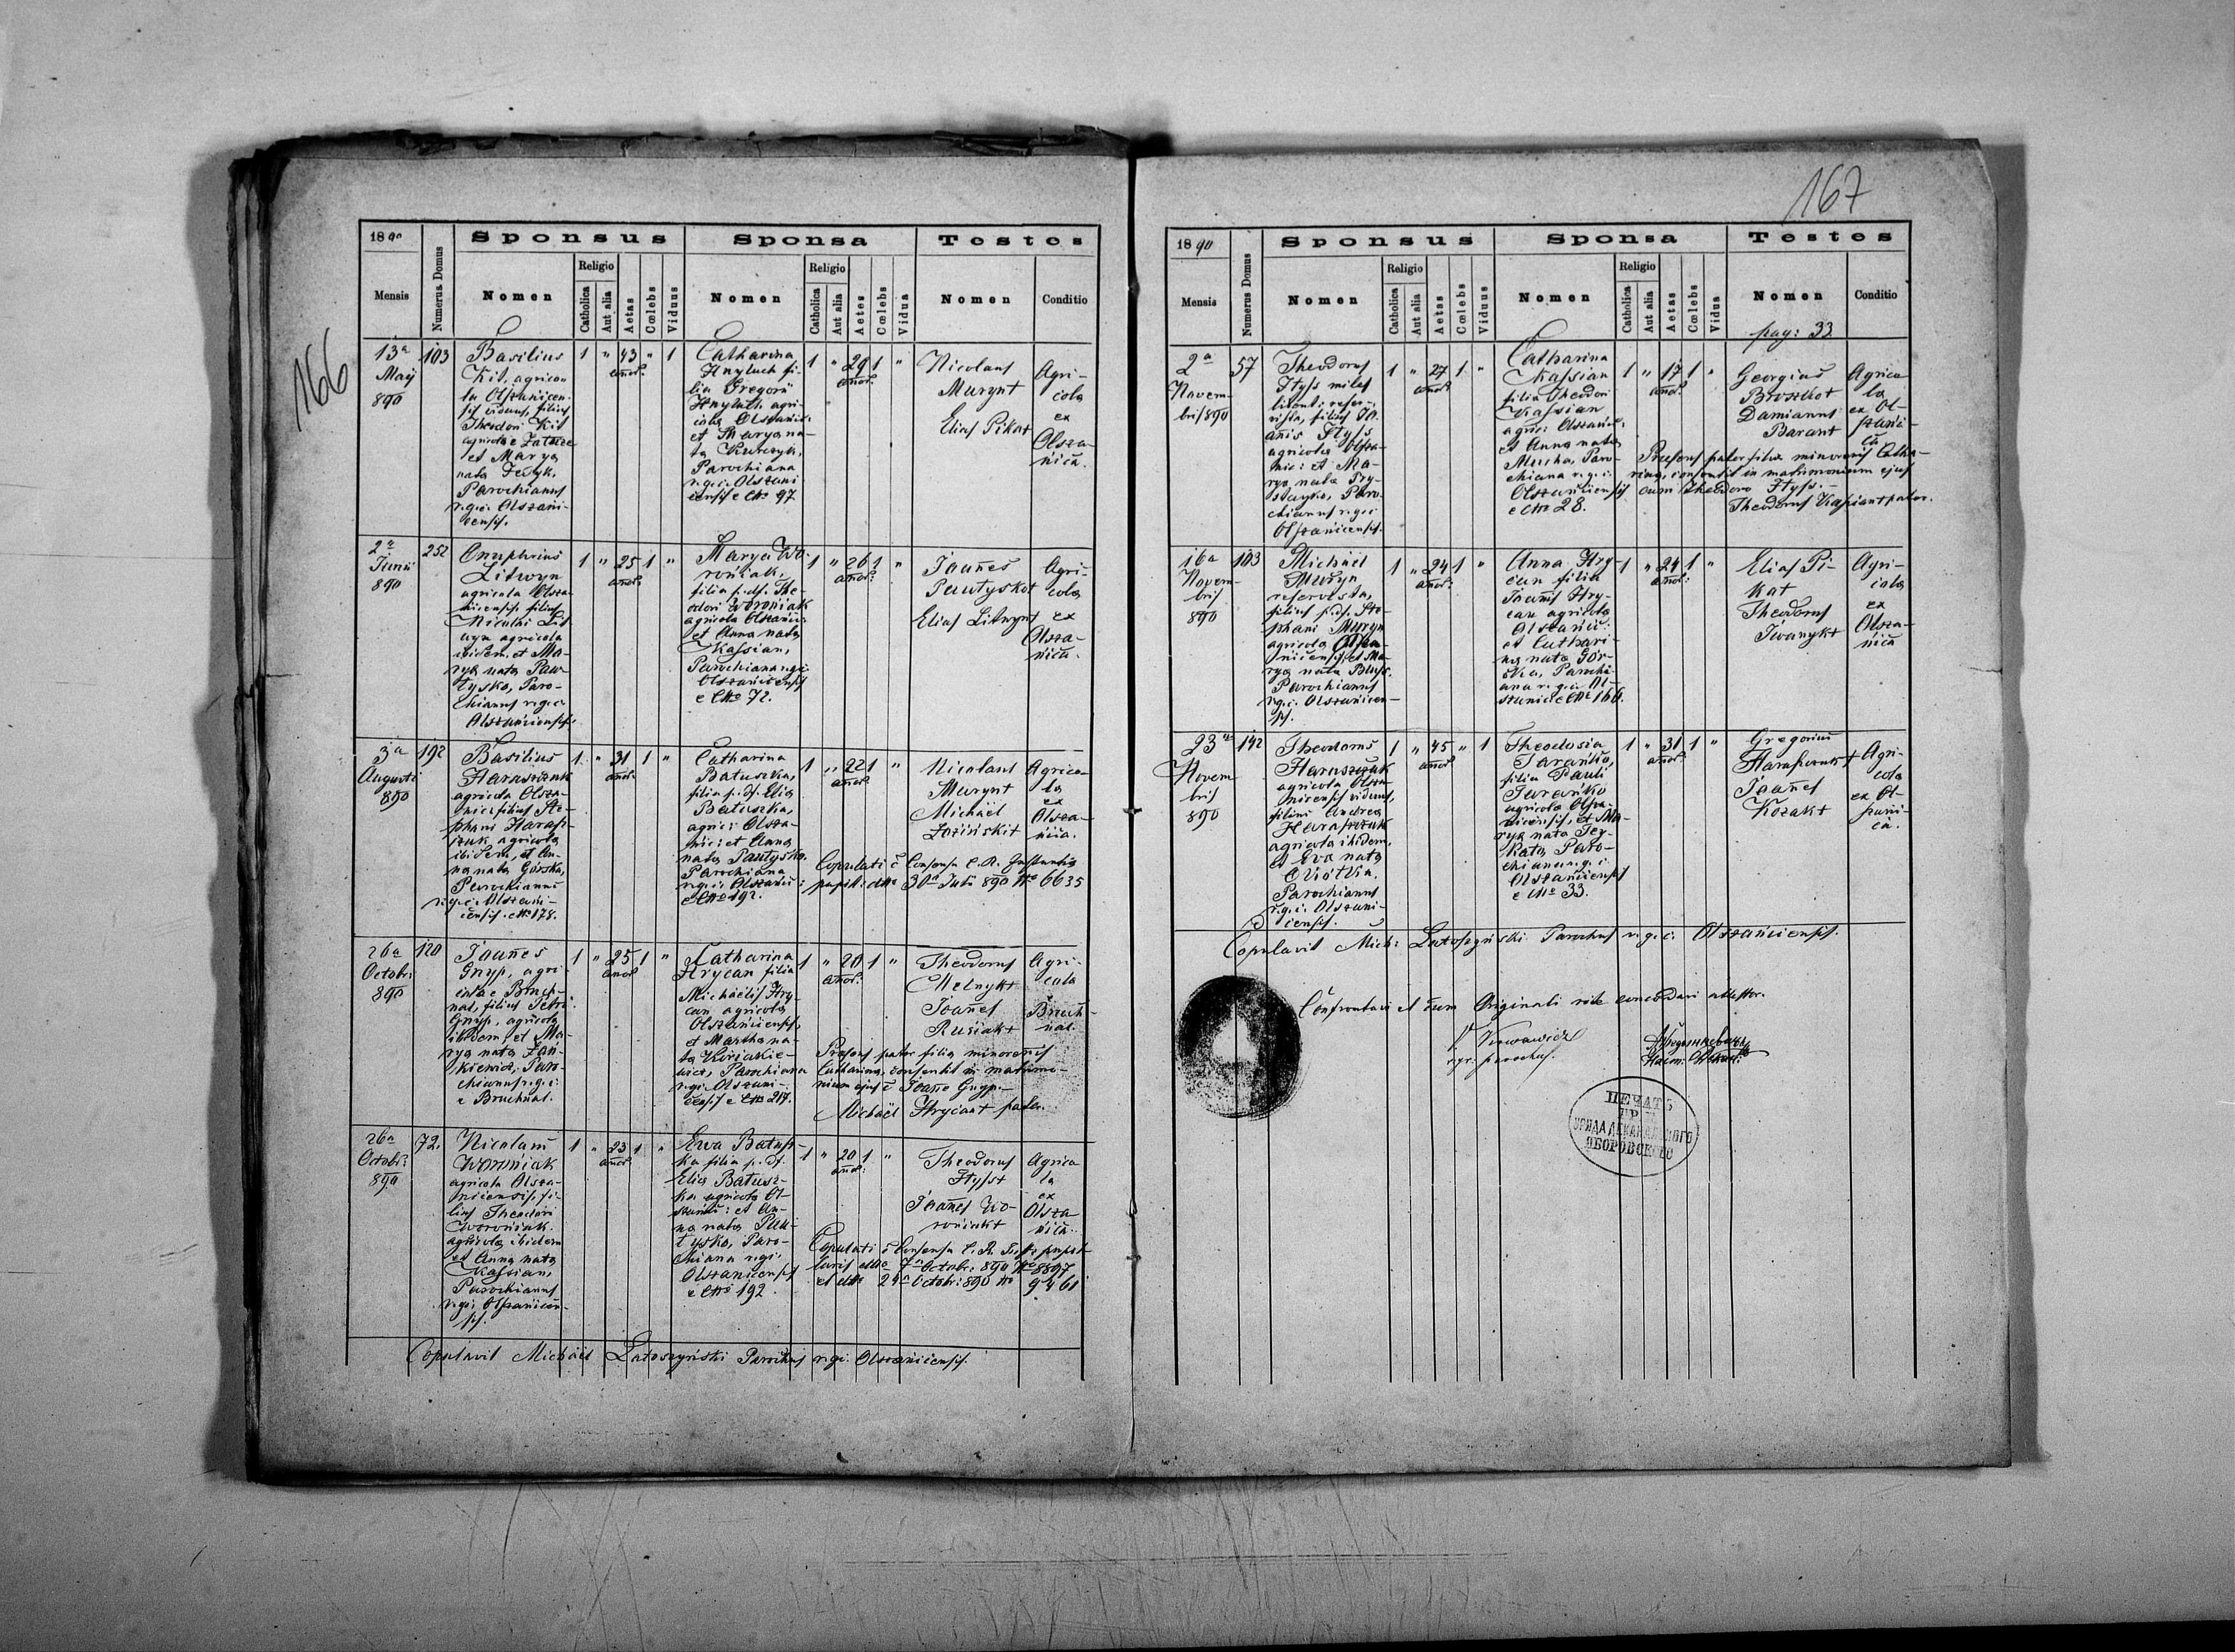 166
1890
Mensis
Numerus Domus
Sponsus
Nomen
Religio
Catholica
Aut alia
Aetas
Cœlebs
Viduus
Sponsa
Nomen
Religio
Catholica
Aut alia
Aetas
Cœlebs
Vidua
Testes
Nomen
Conditio
13a
Maji
890
103
Basilius
Kit, agrico-
la Olszanicen-
sis viduus, filius
Theodori Kit
agricola e Zatucze
et Marya
nata
Parochianus
r.g.c. Olszani-
censis.
1 " 43 " 1
annor:
Catharina
Hnyluch fi-
lia Gregorii
Hnyluch agri-
cola Olszanic:
et Marya na-
ta Kurczyk,
Parochiana
r.g.c. Olszani
censis e No 97
1 " 29 1 "
annor:
Nicolaus
Muryn+
Elias Pikat
Agri-
cola
ex
Olsza-
nica.
2a
Junii
890
252
Onuphrius
Litwyn
agricola Olsza-
nicensis filius
Nicolai Lit
wyn agricola
ibidem, et Ma-
rya nata Paw
tysko, Paro-
chianus r.g.c.
Olszanicensis.
1 " 25 1 "
annor:
Marya Wo-
roniak,
filia p.df. The-
odori Woroniak
agricola Olszanic:
et Anna nata
Kassian,
Parochiana r.g.c.
Olszanicensis
e No 72.
1 " 26 1 "
annor:
Joannes
Pautysko+
Elias Litwyn+
Agri-
cola
ex
Olsza-
nica.
3a
Augusti
890
192
Basilius
Haraszczuk
agricola Olsza-
nic: filius Ste-
phani Harasz-
czuk agricola
ibidem, et An-
na nata Górska,
Parochianus
r.g.c. Olszani-
censis. e No 178.
1 " 31 1 "
annor:
Catharina
Batuszka,
filia p. df. Elia
Batuszka,
agric: Olsza-
nic: et Anna
nata Pautysko.
Parochiana
r.g.c. Olszanic:
e No 192.
1 " 22 1 "
annor:
Nicolaus
Muryn+
Michaël
Łoziński+
Agrico-
la
ex
Olsza-
nica.
Copulati c Consensu C. R. Instantia
pupil: dtto 30a Juli 890 No 6635
26a
Octobr:
890
120
Joannes
Gnyp, agri-
cola e Bruch-
nal, filius Petri
Gnyp, agricola
ibidem, et Ma-
rya nata Zań-
kiewicz, Paro-
chianus r.g.c.
e Bruchnal.
1 " 25 1 "
annor:
Catharina
Hrycan filia
Michaëlis Hry-
can agricola
Olszanicensis,
et Martha na-
ta Koriakie-
wicz, Parochiana
r.g.c. Olszani-
censis e No 217.
1 " 20 1 "
annor:
Theodorus
Melnyk+
Joannes
Rusiak+
Agri-
cola
Bruch-
nal.
Presens pater filia minorennis
Catharina, consentit in matrimo-
nium ejus c Joanne Gnyp.-
Michaël Hrycan+ pater.
26a
Octobr:
890
72.
Nicolaus
Woroniak
agricola Olsza-
nicensis, fi-
lius Theodori
Woroniak.
agricola ibidem
et Anna nata
Kassian,
Parochianus
r.g.c. Olszanicen-
sis.
1 " 23 1 "
annor:
Ewa Batusz-
ka filia p. df.
Elia Batusz-
ka agricola Ol-
szanic: et An-
na nata Pau-
tysko, Paro-
chiana r.g.c.
Olszanicensis
e No 192.
1 " 20 1 "
annor:
Theodorus
Hyss+
Joannes Wo-
roniak+
Agrico
la
ex
Olsza
nica.
Copulati c Consensu C. R. pupil-
laris dtto 7a Octobr: 890 No 8897
et dtto 24a Octobr: 890 No 9461
Copulavit Michaël Łatoszyński Parochus r.g.c. Olszanicensis.
167
1890
Mensis
Numerus Domus
Sponsus
Nomen
Religio
Catholica
Aut alia
Aetas
Cœlebs
Viduus
Sponsa
Nomen
Religio
Catholica
Aut alia
Aetas
Cœlebs
Vidua
Testes
Nomen
Conditio
pag: 33.
2a
Novem-
bris 890
57
Theodorus
Hyss miles
reser-
vista, filius Jo-
annis Hyss
agricola Olsza-
nic: et Ma-
rya nata Pry-
stayko, Paro-
chianus r.g.c.
Olszanicensis.
1 " 27 1 "
annor:
Catharina
Kassian
filia Theodori
Kassian
agric: Olszanic:
et Anna nata
Mucha, Paro-
chiana r.g.c.
Olszanicensis
e No 28.
1 " 17 1 "
annor:
Georgius
Broszko+
Damianus
Baran+
Agrico
la
ex Ol-
szani-
ca
Presens pater filia minorennis Catha-
rina, consentit in matrimonium ejus
cum Theodoro Hyss.-
Theodorus Kassian+ pater.
16a
Novem-
bris
890
103
Michaël
Muryn
reservista,
filius p.df. Ste-
phani Muryn
agricola Olsza-
nicensis, et Ma-
rya nata Buss.
Parochianus
r.g.c. Olszanicen-
sis.
1 " 24 1 "
annor:
Anna Hry-
can filia
Joannis Hry-
can agricola
Olszanic:
et Cathari-
na nata Gór-
ska, Parochi-
ana r.g.c. Ol-
szanic: e No 166.
1 " 24 1 "
annor:
Elias Pi-
kat
Theodorus
Iwanyk+
Agri-
cola
ex
Olsza-
nica
23a
Novem
bris
890
142
Theodorus
Haraszczuk
agricola Olsza-
nicensis viduus,
filius Andrea
Haraszczuk
agricola ibidem,
et Eva nata
Parochianus
r.g.c. Olszani-
censis.
1 " 45 " 1
annor:
Theodosia
Tarańko,
filia Pauli
Tarańko
agricola Olsza-
nicensis, et Ma-
rya nata
Paro-
chiana r.g.c.
Olszanicensis
e No 33.
1 " 31 1 "
annor:
Gregorius
Haraszczuk+
Joannes
Kozak+
Agri-
cola
ex Ol-
szani-
ca.
Copulavit Mich: Łatoszyński Parochus r.g.c. Olszanicensis.
Confrontavi et cum Originali rite concordari attestor.
r.gr. parochus.
ПЕЧАТЬ